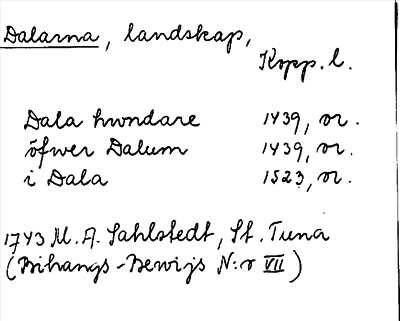 Dalarna, landskap,
Kopp. l.
Dala hwndare 1439, or.
öfwer Dalum 1439, or.
i Dala 1523, or.
1743 M. A. Sahlstedt, St. Tuna
(Bihangs-Bewijs N:o VII)